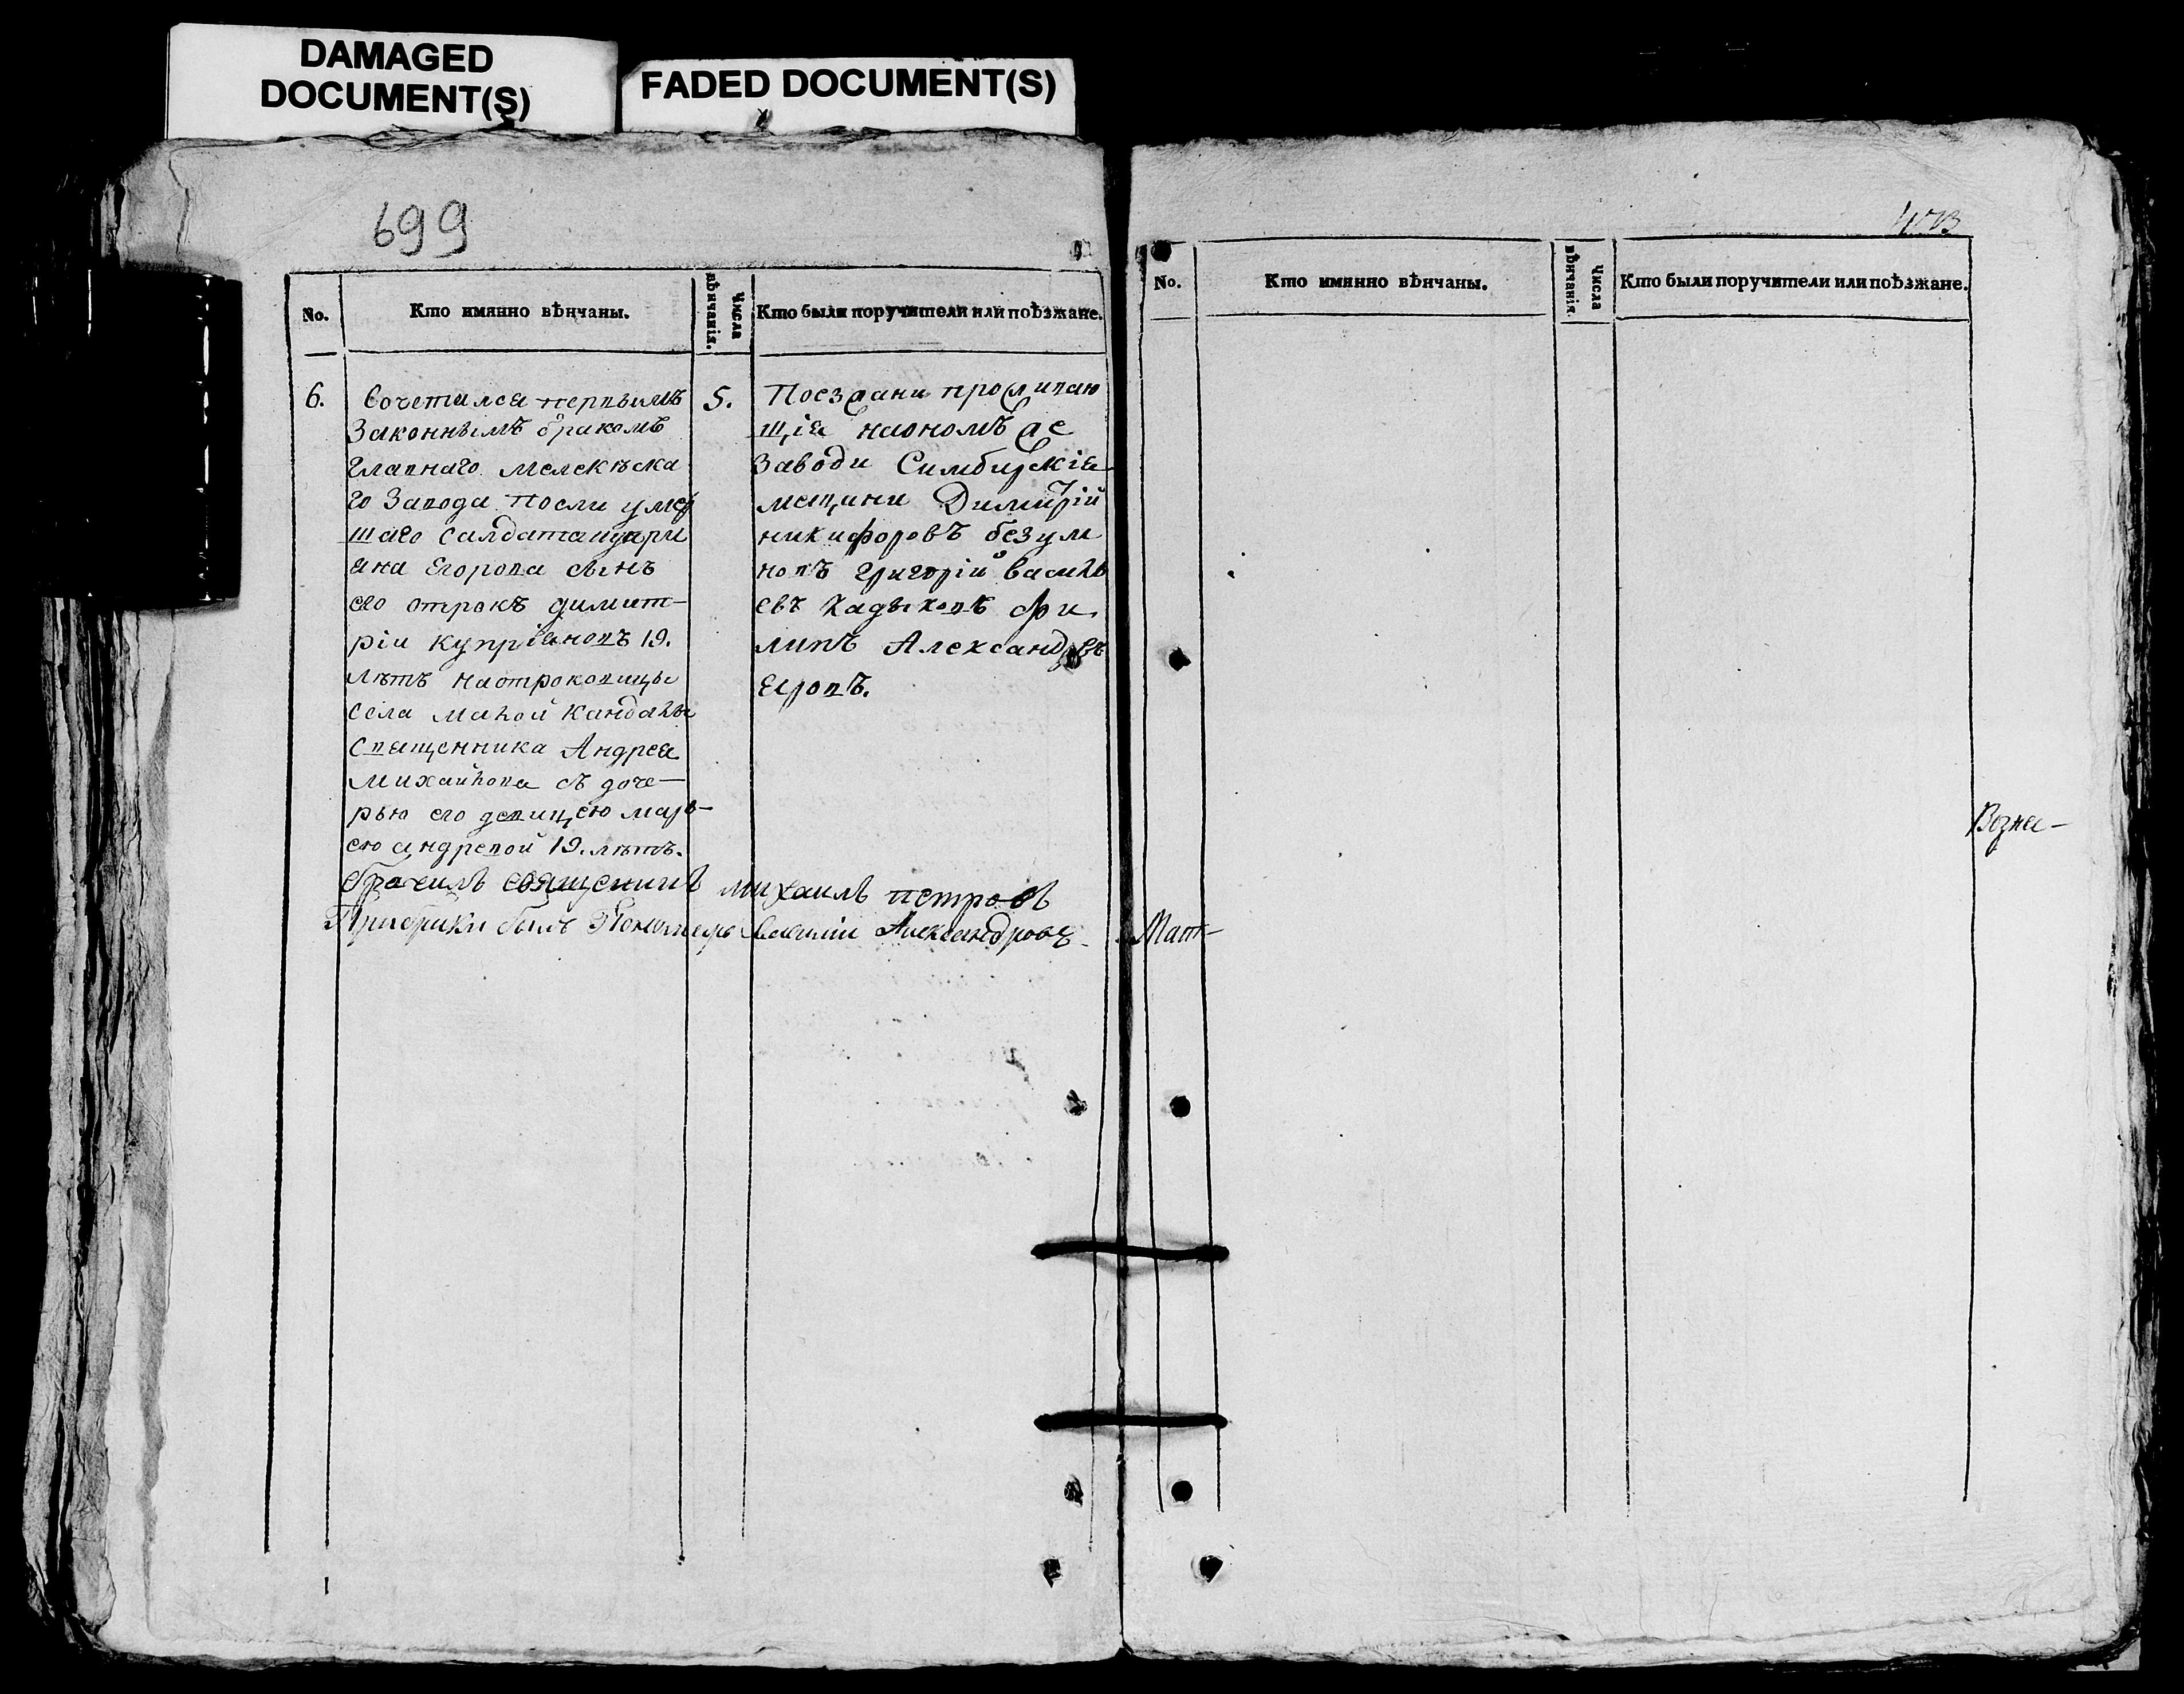 DAMAGED
DOCUMENT(S)
FADED DOCUMENT(S)
699
No.
Кто имянно вѣнчаны.
Числа
вѣнчанія.
Кто были поручители или поѣзжане.
6.
Сочетался первымъ
законнымъ бракомъ
главнаго мелекѣска
го завода посли умер
шаго салдата купри
яна Егорова сынъ
его отрокъ димит-
рій купріяновъ 19.
лѣтъ наотроковицы
села малой кандалы
священника Андрея
михайлова съ доче-
рью его девицею марь-
ею андревой 19. лѣтъ.
5.
Поезжани проживаю
щія наономъ же
заводи Симбирскія
мещини Димитрій
никифоровъ безум
новъ григорій василь
евъ кадыковъ фи
липъ Александревъ
брачилъ священникъ михаилъ петровъ
При браки былъ Пономарь Василіи Александровъ
473
No.
Кто имянно вѣнчаны.
Числа
вѣнчанія.
Кто были поручители или поѣзжане.
Возне-
Мат-